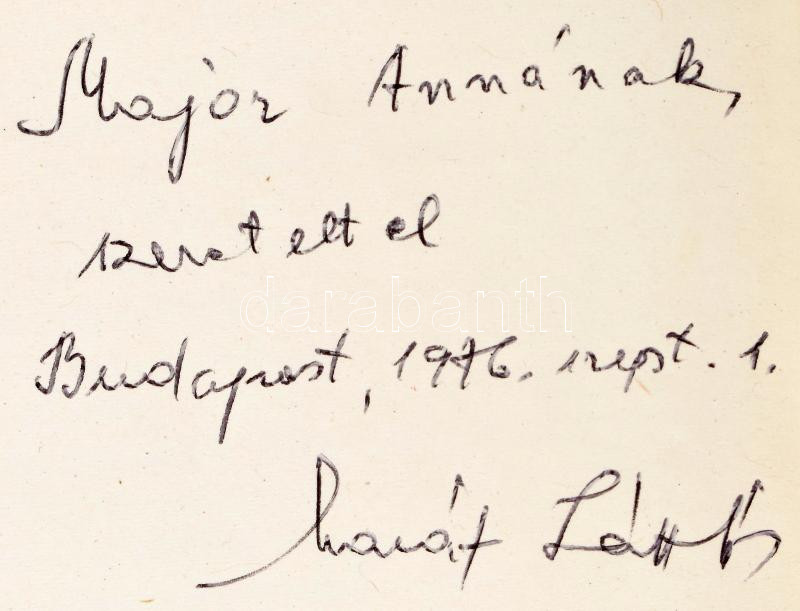 Major Annának,
szeretettel
darabanth
Budapest, 1976. szept. 1.
László